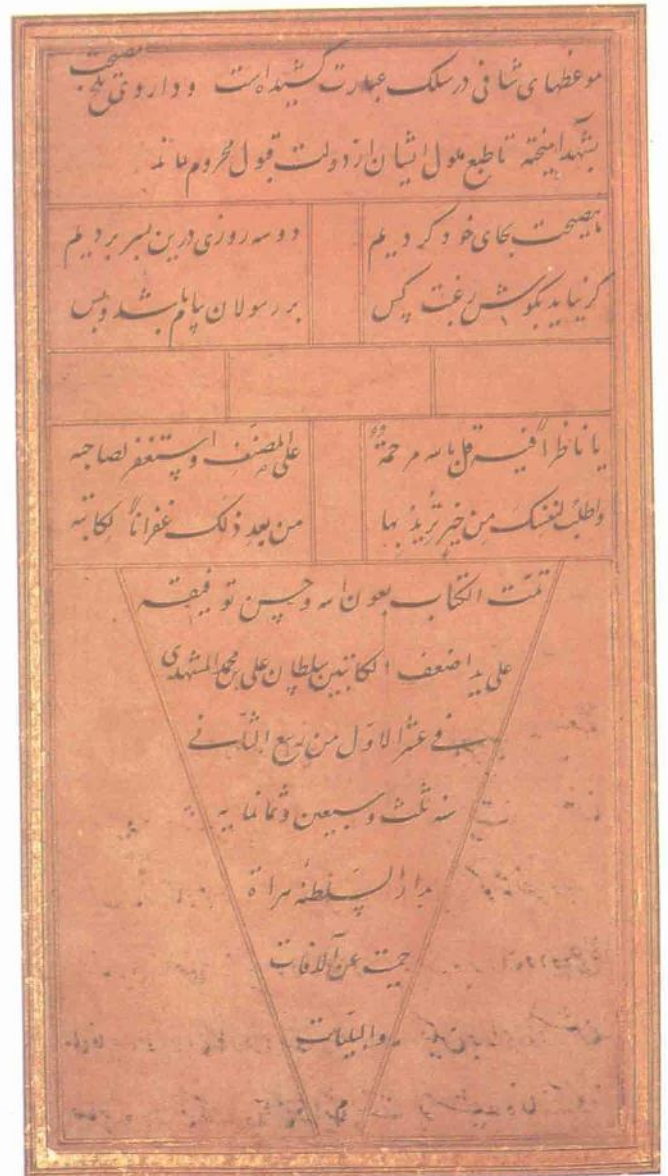 موعظهای شافی در سلک عبارت کشیده است و داروی تلخ نصیحت
بشهد آمیخته تا طبع ملول ایشان از دولت قبول محروم نماند
ما نصیحت بجای خود کردیم دو سه روزی درین بسر بردیم
گر نیاید بگوش رغبت کس بر رسولان پیام باشد و بس
یا ناظراً فیه قل بالله مرحمةً علی المصنف و استغفر لصاحبه
واطلب لنفسک من خیر ترید بها من بعد ذلک غفراناً لکاتبه
تمّت الکتاب بعون الله و حسن توفیقه
علی ید اضعف الکاتبین سلطان علی بن محمد المشهدی
فی عشر الاول من ربیع الثانی
سنه ثلث و سبعین و ثمانمایه
بدار السلطنه هراة
حمیت عن الآفات
والبلیات